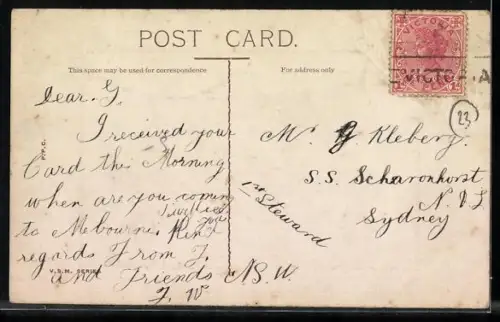 POST CARD.
This space may be used for correspondence
For address only
VICTORIA
VICTORIA
23
Dear G,
I received your
Card this Morning
when are you coming
to Melbourni Kind
regards From J.
and Friends
J. W
Mr G Kleberg.
S.S. Scharonhorst
N. D L
Sydney
1st Steward
N.S.W.
P.P.C.
V.S.M. SERIES